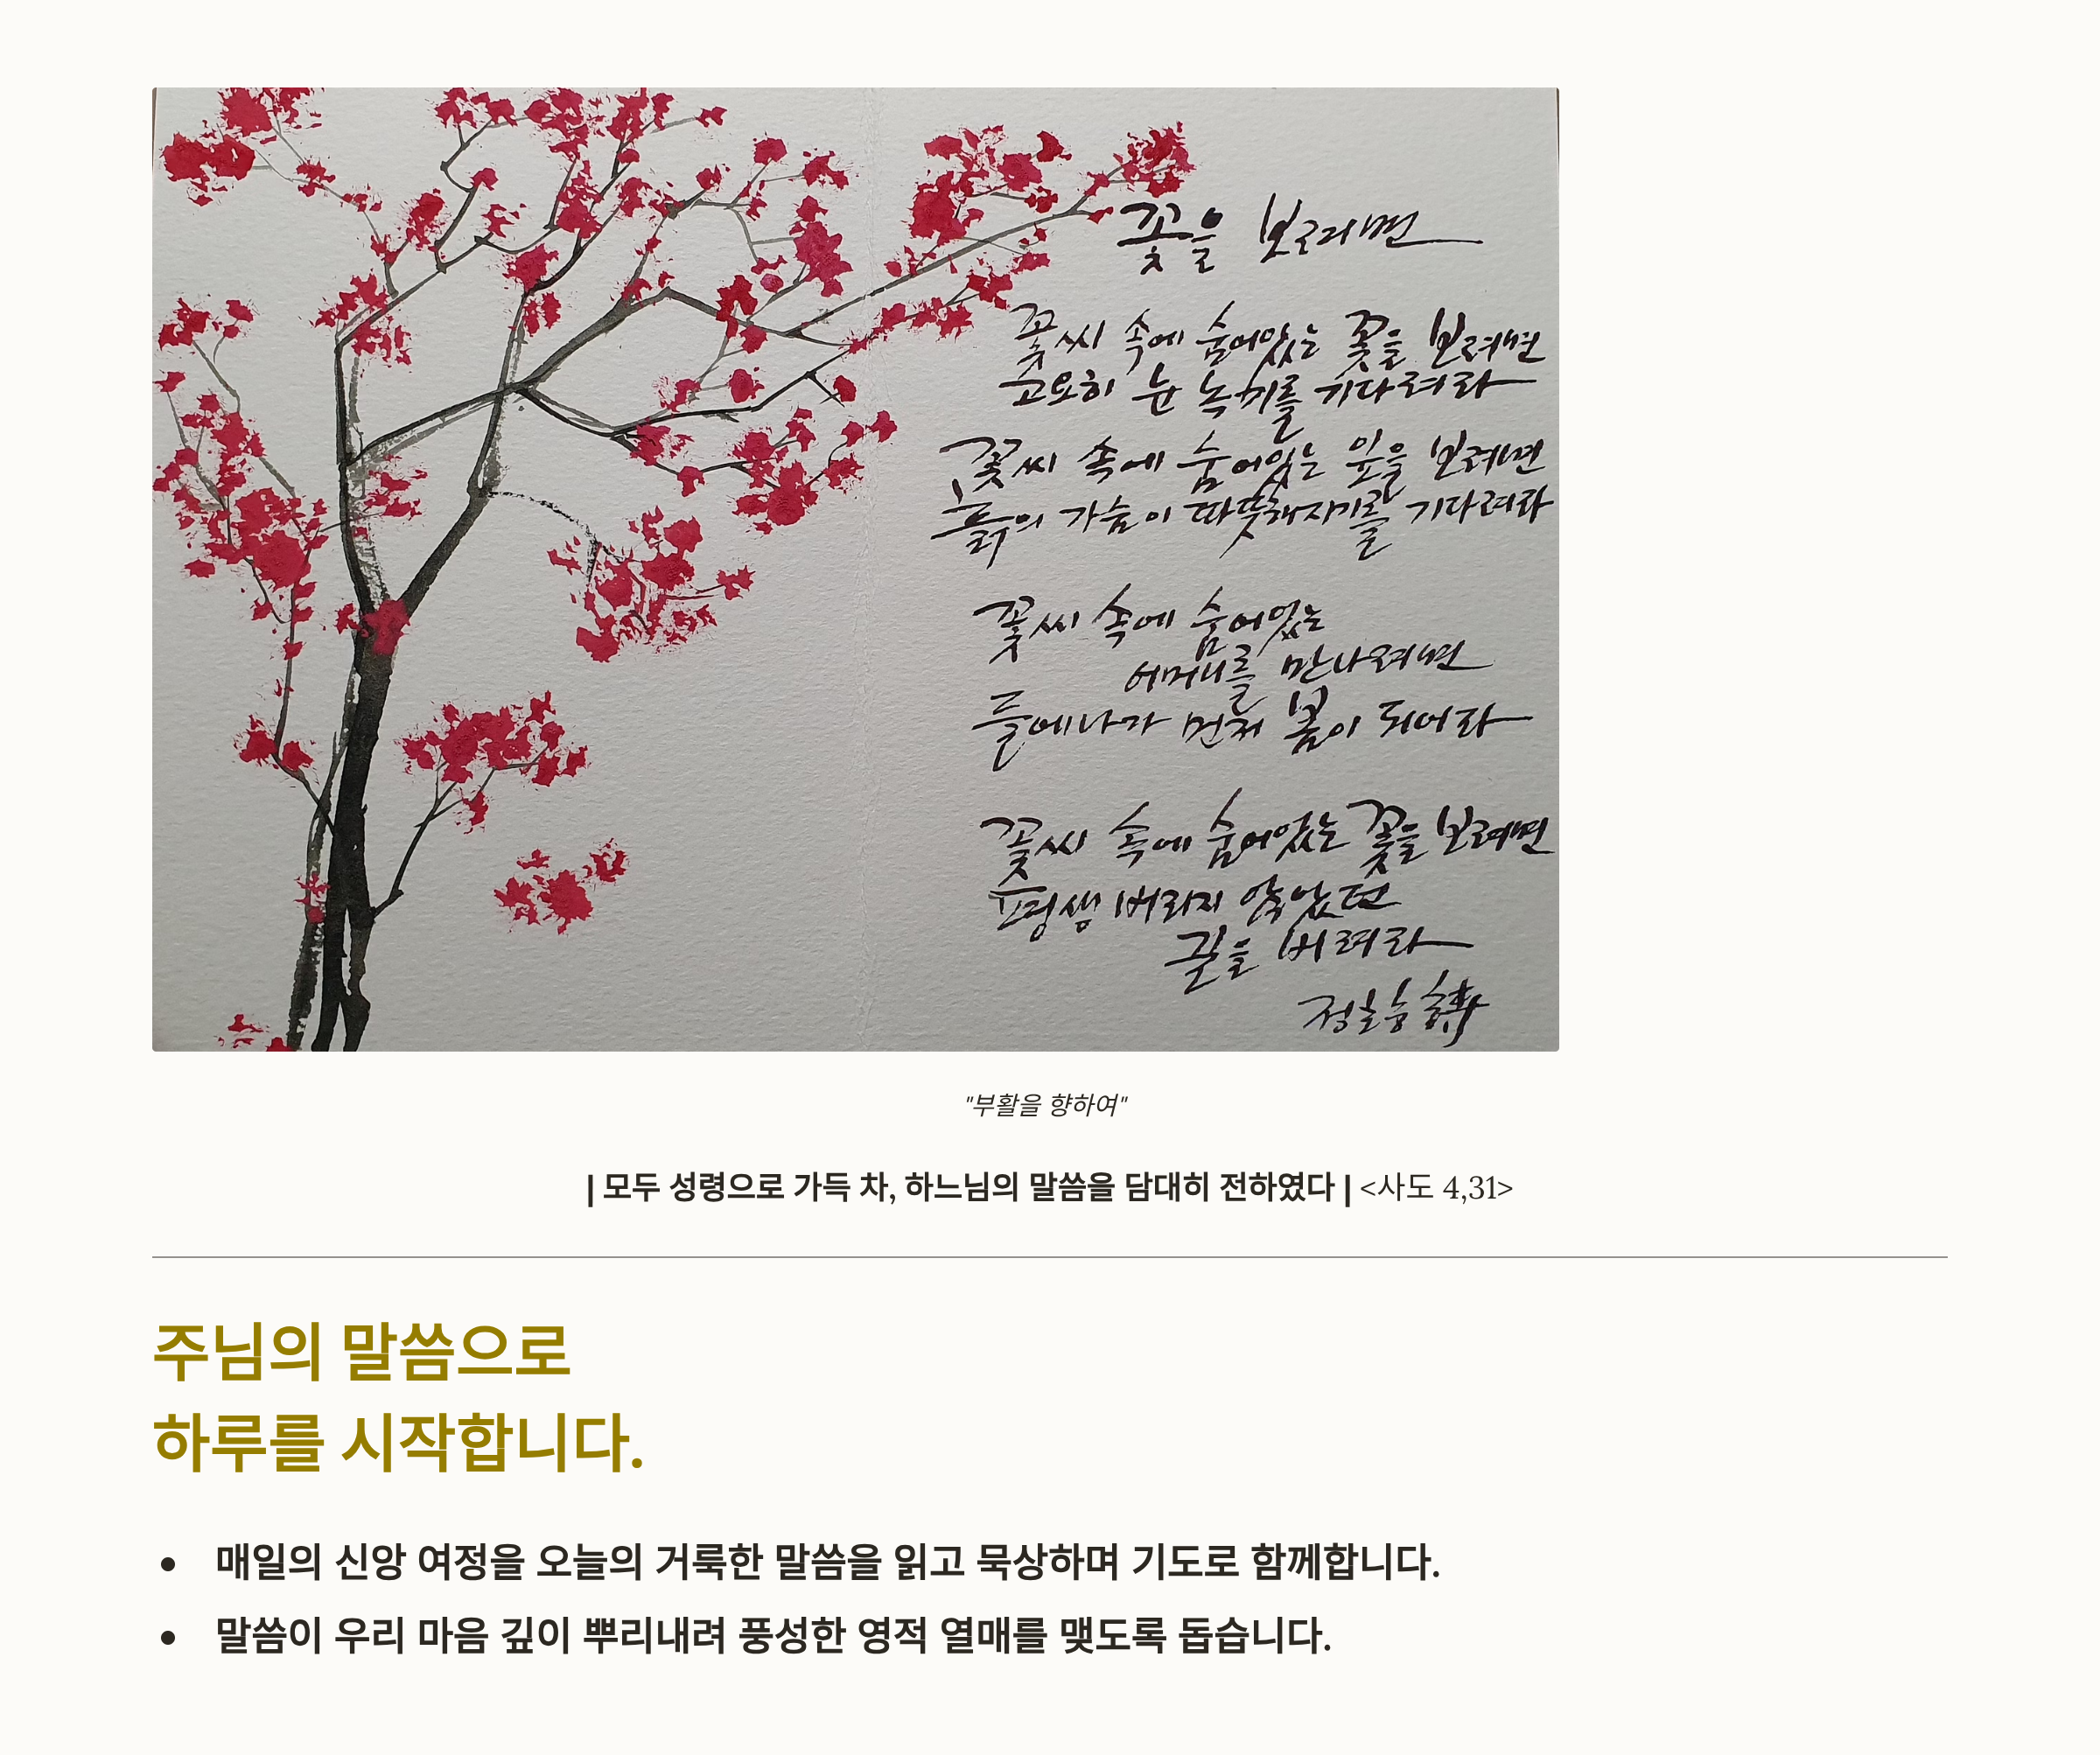 꽃을 보려면
꽃씨 속에 숨어있는 꽃을 보려면
고요히 눈 녹기를 기다려라
꽃씨 속에 숨어있는 잎을 보려면
흙의 가슴이 따뜻해지기를 기다려라
꽃씨 속에 숨어있는
어머니를 만나려면
들에 나가 먼저 봄이 되어라
꽃씨 속에 숨어있는 꽃을 보려면
평생 버리지 않았던
꿈을 버려라
정호승 詩
"부활을 향하여"
| 모두 성령으로 가득 차, 하느님의 말씀을 담대히 전하였다 | <사도 4,31>
주님의 말씀으로
하루를 시작합니다.
• 매일의 신앙 여정을 오늘의 거룩한 말씀을 읽고 묵상하며 기도로 함께합니다.
• 말씀이 우리 마음 깊이 뿌리내려 풍성한 영적 열매를 맺도록 돕습니다.